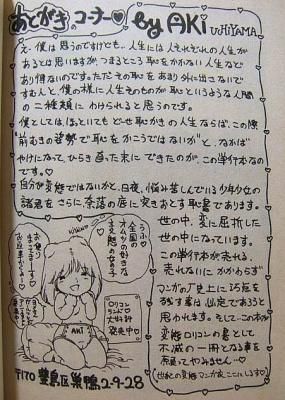 あとがきのコーナー♡ by AKI UCHIYAMA
え、僕は思うのですけども、人生には人それぞれの人生が
あるとは思いますが、つまるところ恥をかかない人生など
あり得ないのです。ただその恥をあまり外に出さないで
すむ人と、僕の様に人生そのものが恥というような人間
の二種類にわけられると思うのです。
僕としては、ほっといてもどーせ恥かきの人生ならば、この際
"前むきの姿勢で恥をかこうではないか"と、なかば
やけになって、ひらき直った末にできたのが、この単行本なの
です。♡
自分が変態ではないかと、日夜、悩み苦しんでいる少年少女の
諸君をさらに、奈落の底に突きおとす恥書であります。
世の中、変に屈折した
世の中になっています。
この単行本が売れる、
売れないにかかわらず
マンガの史上に汚点を
残す事は必定であると
思われます。そしてこの本が
変態ロリコンの書として
不滅の一冊となる事を
願ってやみません…♡
うふっ♡
全国の
オムツの好きな
変態のみな子
AKI
ロリコン
ランド
大好評
発売中♡
〒170 豊島区巣鴨2-9-28